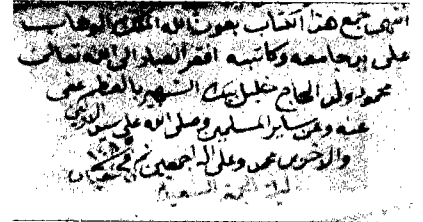 انتهى جمع هذا الكتاب بعون الله الملك الوهاب
على يد جامعه وكاتبه افقر العباد الى الله تعالى
محمود ولد الحاج خليل الشهير بالعظم عفى
عنه وعن ساير المسلمين وصلى الله على سيد الاولين
والاخرين محمد وعلى اله اجمعين
ليلة الجمعة